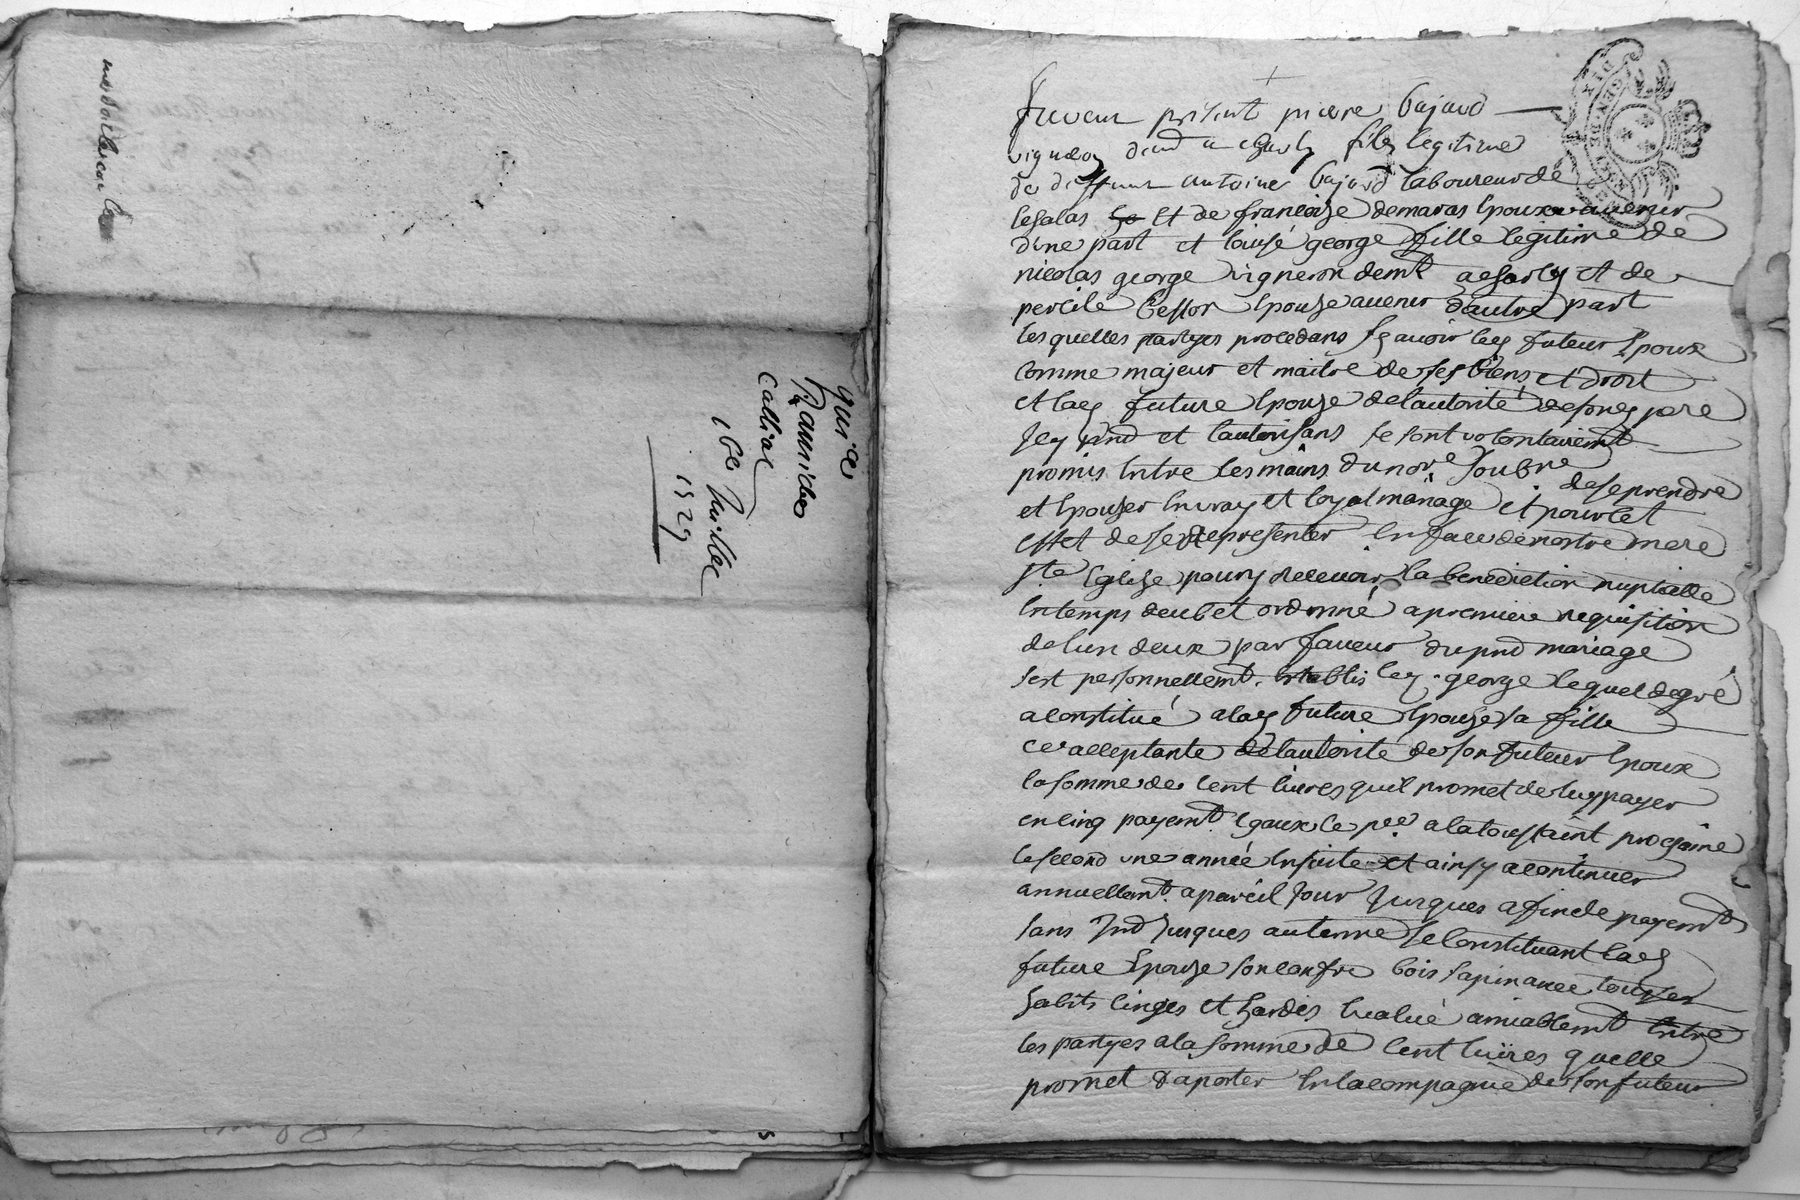 16e Juillet
1729
furent present pierre bajard
vigneron dem.t a charly filz legitime
de deffunt antoine bajard laboureur de
et de francoize demaras epoux avenir
d'une part et louise george fille legitime de
nicolas george vigneron demt a charly et de
percile bessor epouze avenir d'autre part
lesquelles partyes procedans sçavoir led futeur epoux
comme majeur et maitre de ses biens et droit
et lad future epouze de l'autorité de son d pere
Jcy pnt et l'autorisans se sont volontairemt
promis entre les mains du nore soubne
de se prendre
et epouzer en vray et loyal mariage et pour cet
effet de se representer en face de nostre mere
ste Eglize pour y recevoir la benediction nuptialle
en temps deub et ordonné a premiere requisition
de l'un d'eux par faveur du pnt mariage
s'est personnellemt establis led. george lequel de gré
a constitué a lad future epouze sa fille
ce acceptante de l'autorité de son futeur epoux
la somme de cent livres quil promet de luy payer
en cinq payemt egaux le pre a la toussaint prochaine
le second une année ensuite et ainsy a continuer
annuellemt a pareil jour jusques a fin de payemt
sans jnt jusques au terme se constituant lad
future epouze son coffre bois sapin avec tous ses
habits linges et hardes evalué amiablemt entre
les partyes a la somme de cent livres quelle
promet d'aporter en la compagnie de son futeur